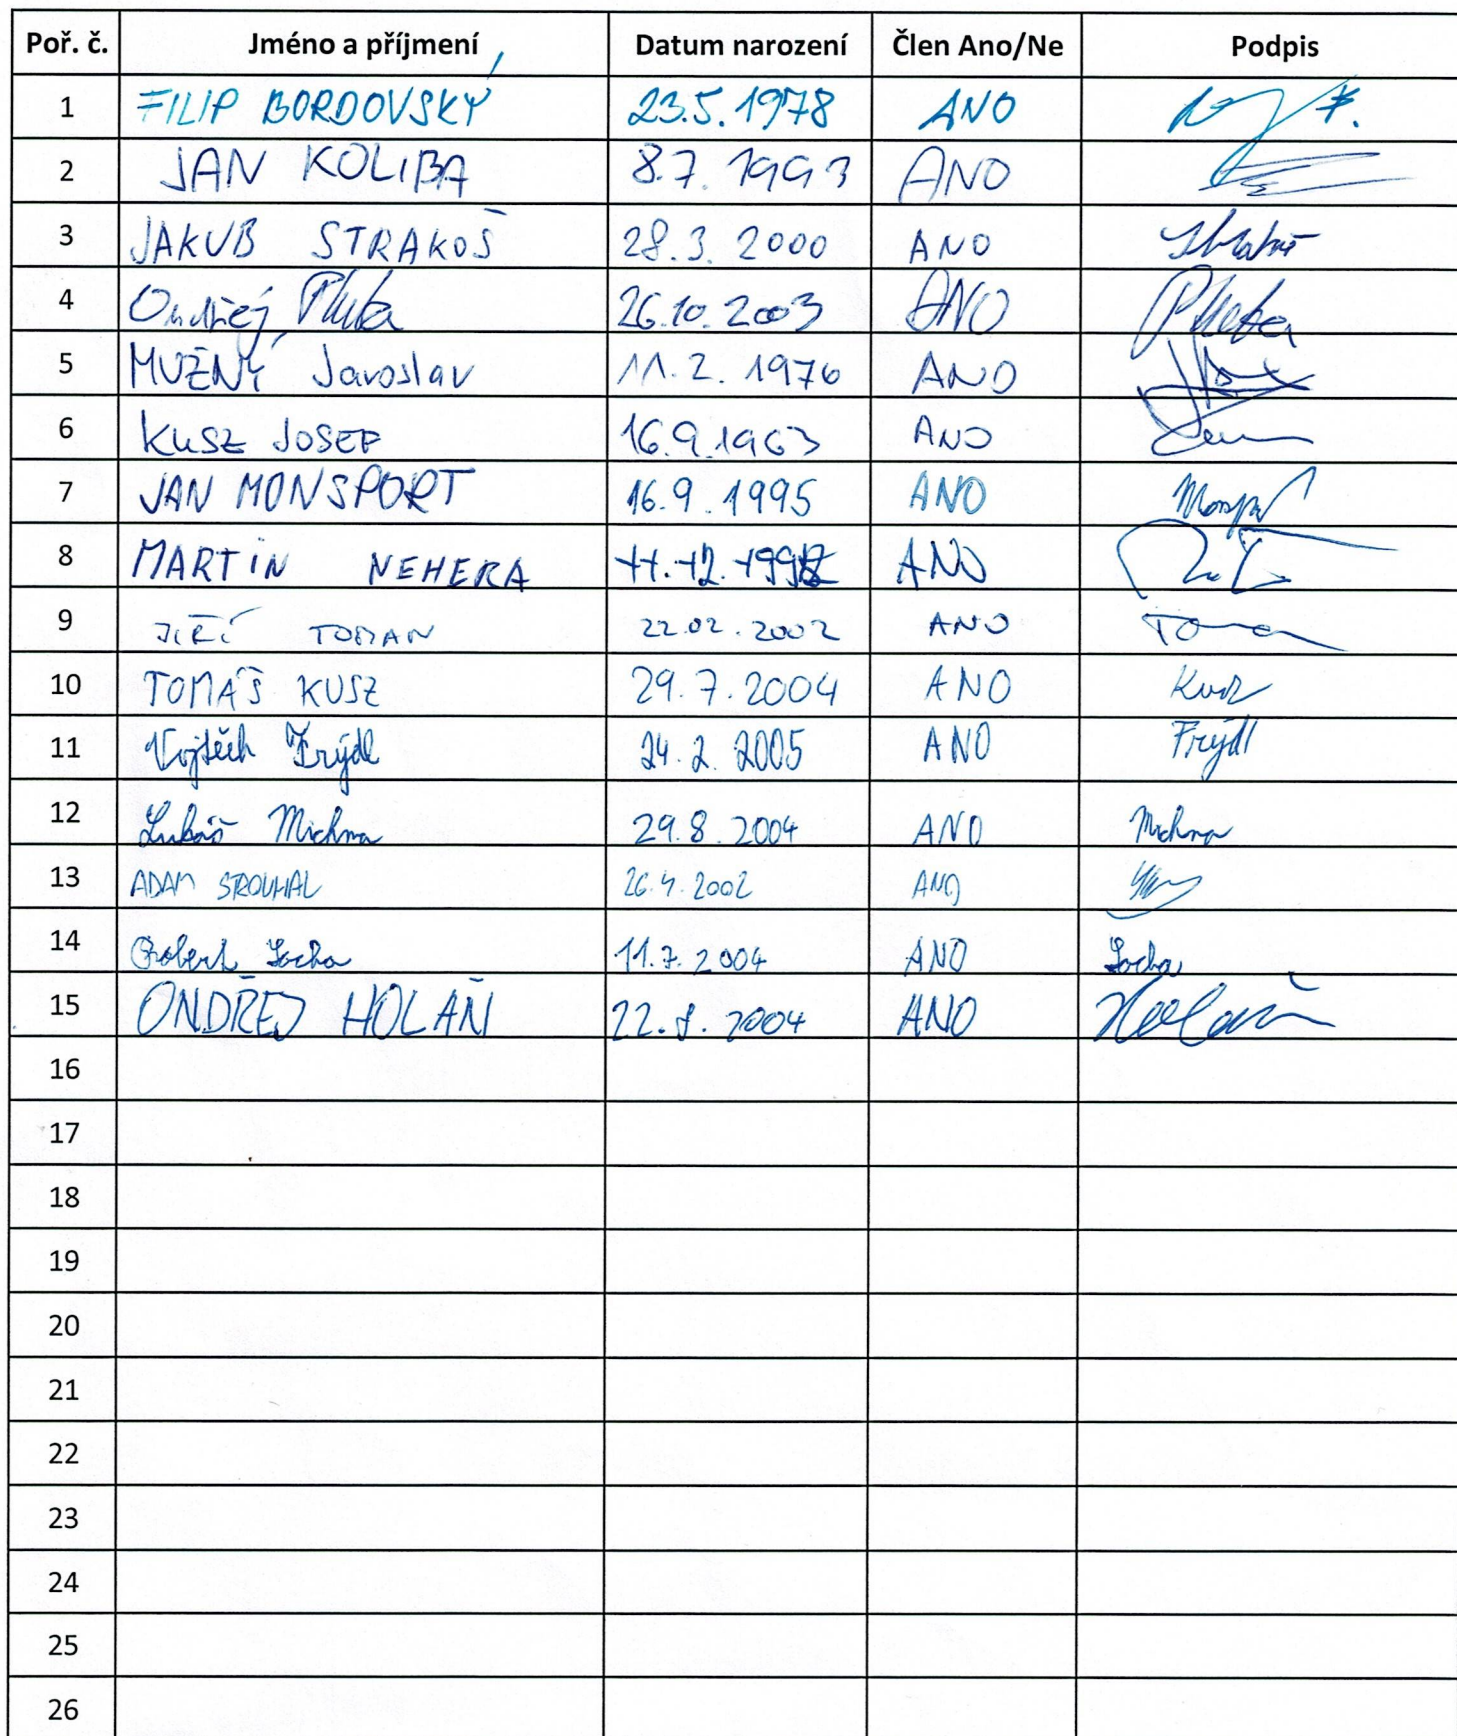 Poř. č. Jméno a příjmení Datum narození Člen Ano/Ne Podpis
1 FILIP BORDOVSKÝ 23.5.1978 ANO
2 JAN KOLIBA 8.7.1993 ANO
3 JAKUB STRAKOŠ 28.3.2000 ANO Strakoš
4 Ondřej Pluta 26.10.2003 ANO Pluta
5 MUŽNÝ Jaroslav 11.2.1976 ANO
6 KUSZ JOSEF 16.9.1963 ANO
7 JAN MONSPORT 16.9.1995 ANO
8 MARTIN NEHERA ANO
9 JIŘÍ TOMAN 22.02.2002 ANO Toman
10 TOMÁŠ KUSZ 29.7.2004 ANO Kusz
11 Vojtěch Frýdl 24.2.2005 ANO Frýdl
12 Lukáš Michna 29.8.2004 ANO Michna
13 ADAM STROUHAL 26.4.2002 ANO
14 Robert Socha 11.7.2004 ANO Socha
15 ONDŘEJ HOLAŇ 22.8.2004 ANO Holaň
16
17
18
19
20
21
22
23
24
25
26